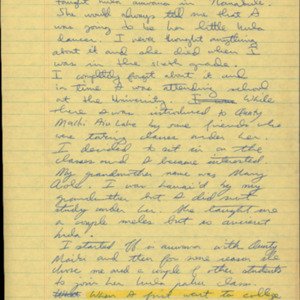 taught hula auwana in Nanakuli.
She would always tell me that I
was going to be her little hula
dancer. I never thought anything
about it and she died when I
was in the sixth grade.
I completely forgot about it and
in time I was attending school
at the University. While
there I was introduced to Aunty
Maiki Aiu Lake by some friends who
were taking classes under her.
I decided to sit in on the
classes and I became interested.
My grandmother name was Mary
I was hanai'd by my
grandmother but I did not
study under her. She taught me
a couple meles but no ancient
hula.
I started in auwana with Aunty
Maiki and then for some reason she
chose me and a couple of other students
to join her hula class.
When I first went to college